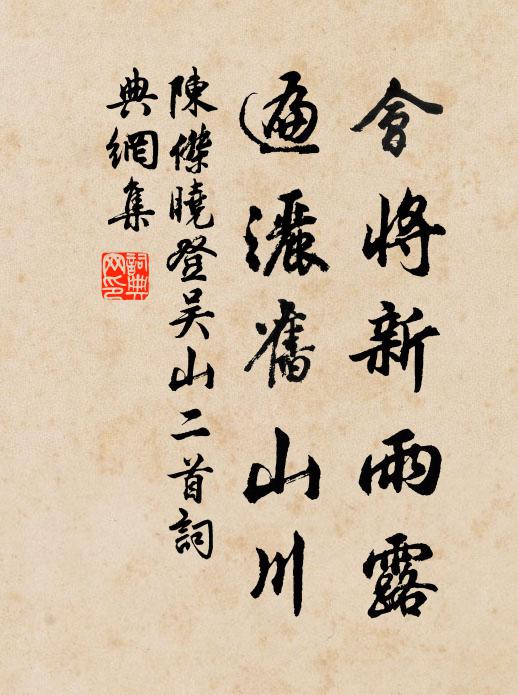 會將新雨露
遍灑舊山川
陳傑曉登吴山二首詞
典網集
詞典网印